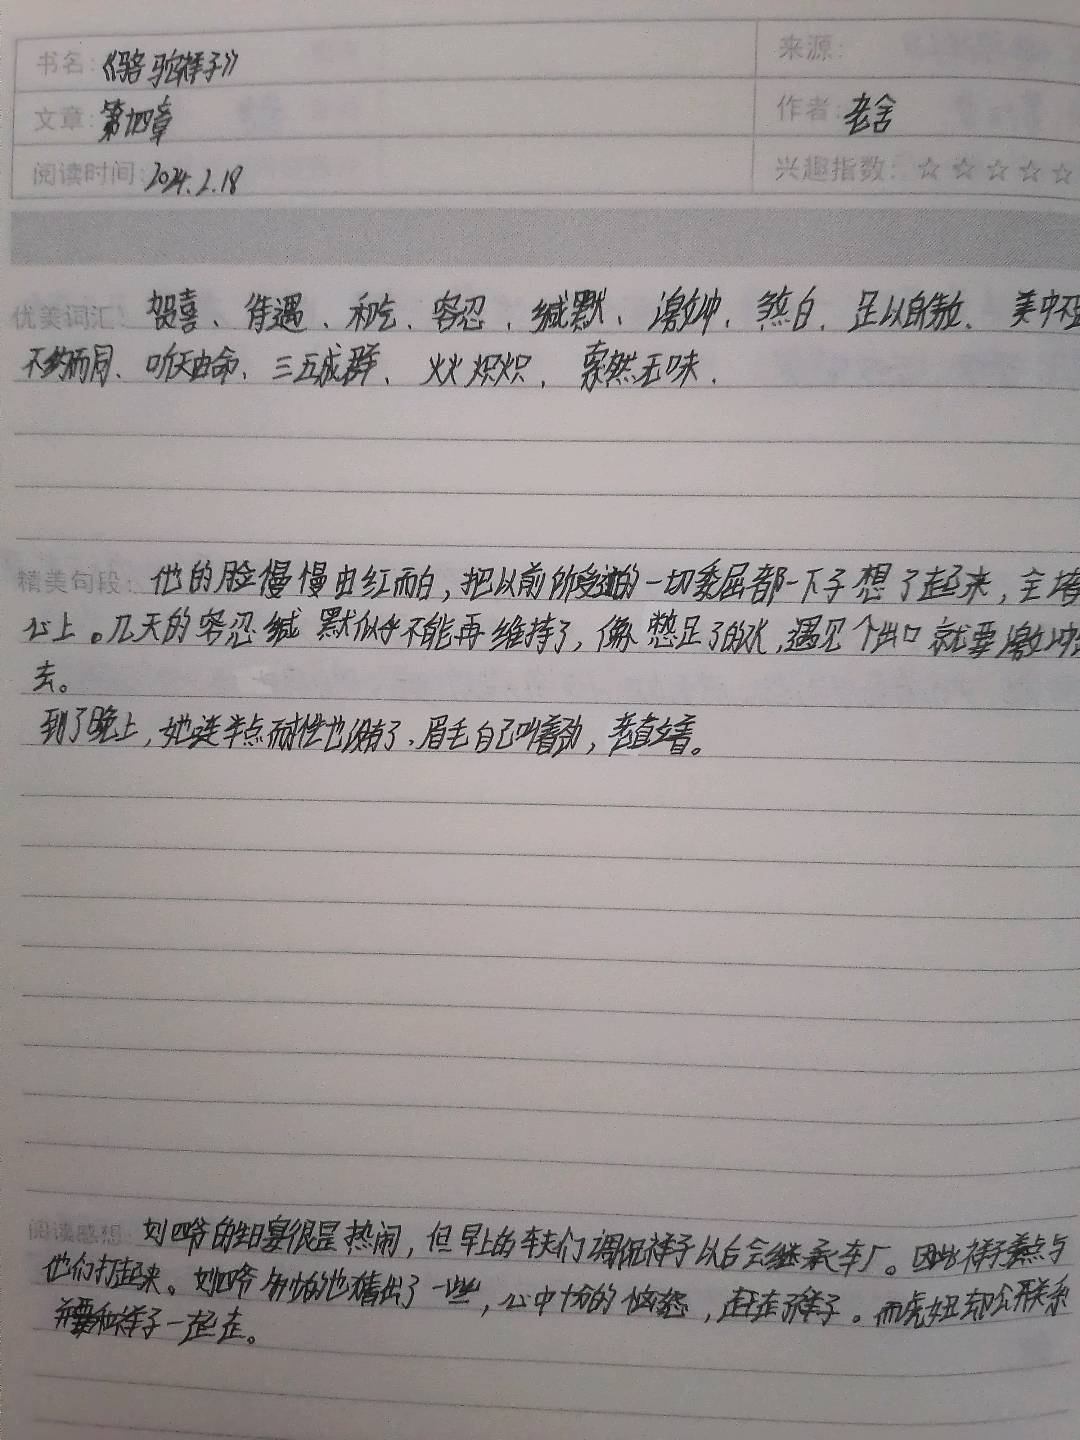 书名：《骆驼祥子》 来源：
文章：第十四章 作者：老舍
阅读时间：2024.2.18 兴趣指数：☆☆☆☆☆
优美词汇：贺喜、待遇、和气、容忍、缄默、激冲、煞白、足以自傲、美中不足
不约而同、听天由命、三五成群、火火炽炽、索然无味.
精美句段：他的脸慢慢由红而白，把以前所受过的一切委屈都一下子想了起来，全堵
心上。几天的容忍缄默似乎不能再维持了，像憋足了的水，遇见个出口就要激冲
去。
到了晚上，她连半点耐性也没有了，眉毛自己叫着劲，老直立着。
阅读感想：刘四爷的生日宴很是热闹，但早上的车夫们调侃祥子以后会继承车厂。因此祥子差点与
他们打起来。刘四爷 也猜出了一些，心中十分的恼怒，赶走了祥子。而虎妞却公开联系
并要和祥子一起走。